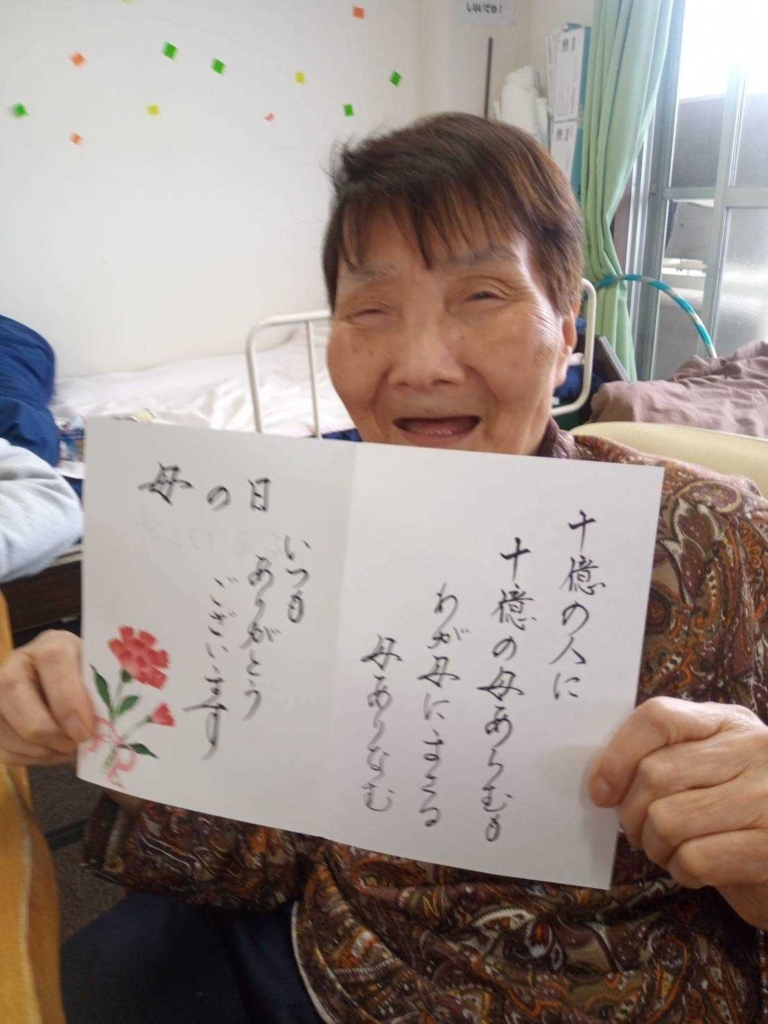 十億の人に
十億の母あらむも
わが母にまさる
母ありなむ
母の日
いつも
ありがとう
ございます